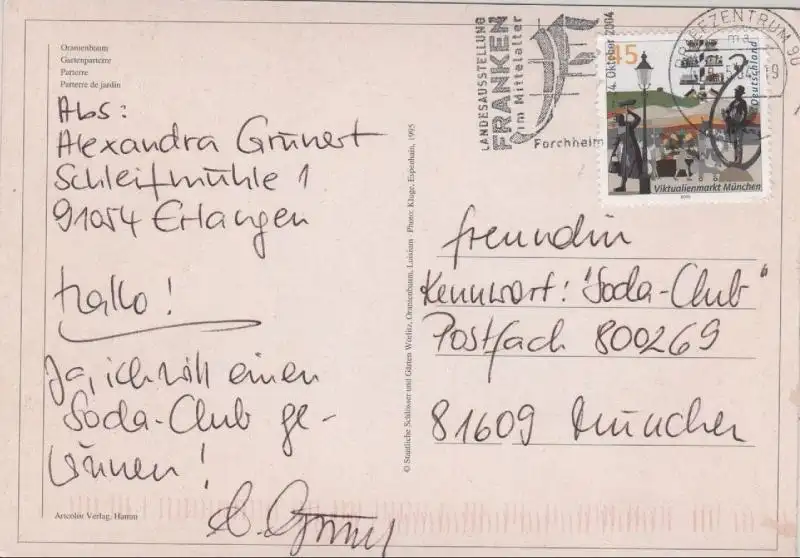 Oranienbaum
Gartenparterre
Parterre
Parterre de jardin
Abs:
Alexandra Grunert
Schleifmühle 1
91054 Erlangen
Hallo!
Ja, ich will einen
Soda-Club ge-
winnen!
Artcolor Verlag, Hamm
© Staatliche Schlösser und Gärten Wörlitz, Oranienbaum, Luisium · Photo: Kluge, Espenhain, 1995
LANDESAUSSTELLUNG
FRANKEN
im Mittelalter
Forchheim
24. Oktober 2004
BRIEFZENTRUM 90
45
Deutschland
Viktualienmarkt München
freundin
Kennwort: "Soda-Club"
Postfach 800269
81609 München